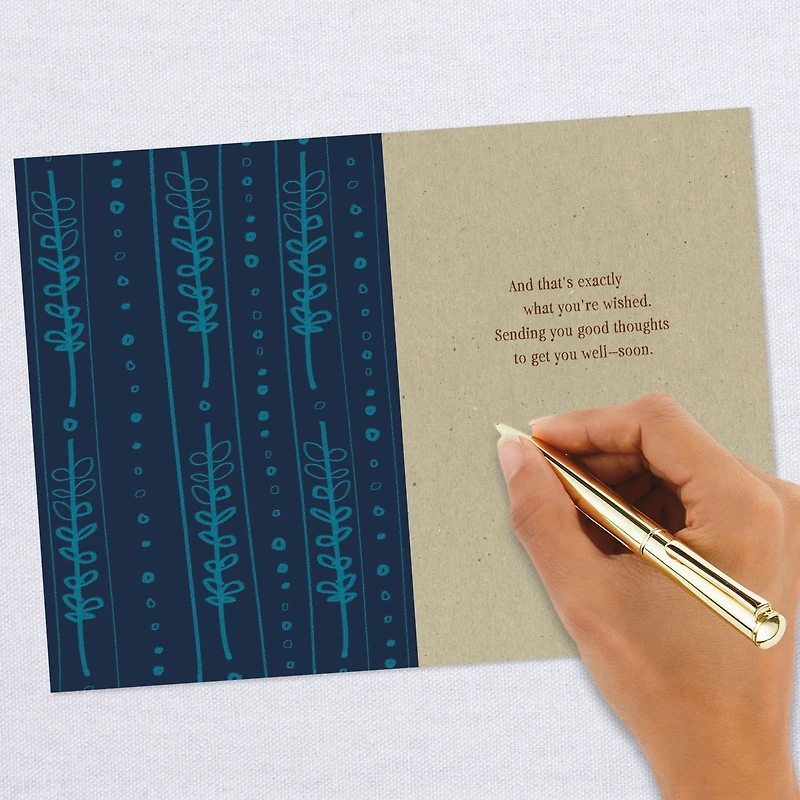 And that's exactly
what you're wished.
Sending you good thoughts
to get you well—soon.